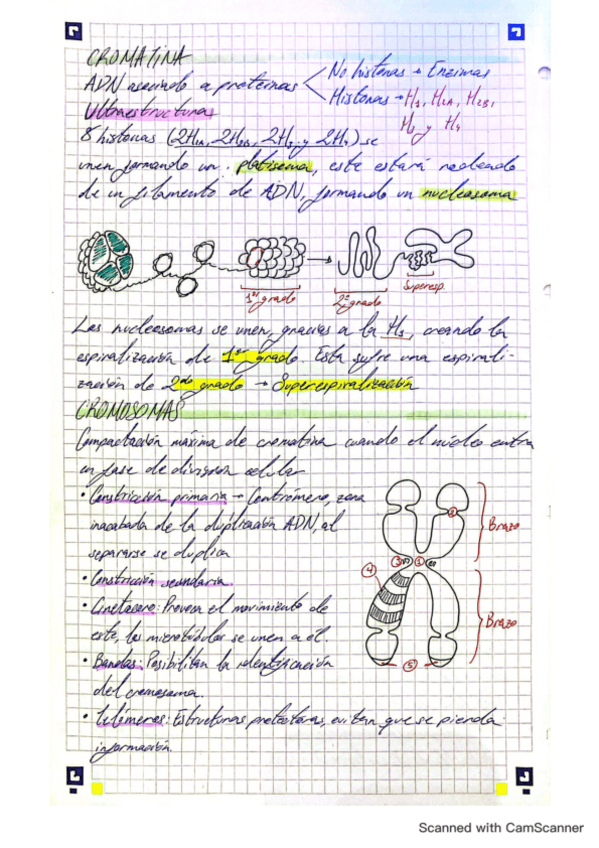 CROMATINA
ADN asociado a proteínas < No histonas → Enzimas
Histonas → H1, H2A, H2B,
H3 y H4
Ultraestructuras
8 histonas (2H2A, 2H2B, 2H3 y 2H4) se
unen formando un platisema, este estará rodeado
de un filamento de ADN, formando un nucleosoma
1er grado
2º grado
Superesp.
Los nucleosomas se unen, gracias a la H1, creando la
espiralización de 1er grado. Esta sufre una espirali-
zación de 2do grado → Superespiralización
CROMOSOMAS
Compactación máxima de cromatina cuando el núcleo entra
en fase de división celular
• Constricción primaria → Centrómero, zona
inacabada de la duplicación ADN, al
separarse se duplica
• Constricción secundaria
• Cinetocoro: Provoca el movimiento de
este, los microtúbulos se unen a él.
• Bandas: Posibilitan la identificación
del cromosoma.
• Telómeros: Estructuras protectoras, evitan que se pierda
información.
2
Brazo
3 1
4
Brazo
5
Scanned with CamScanner